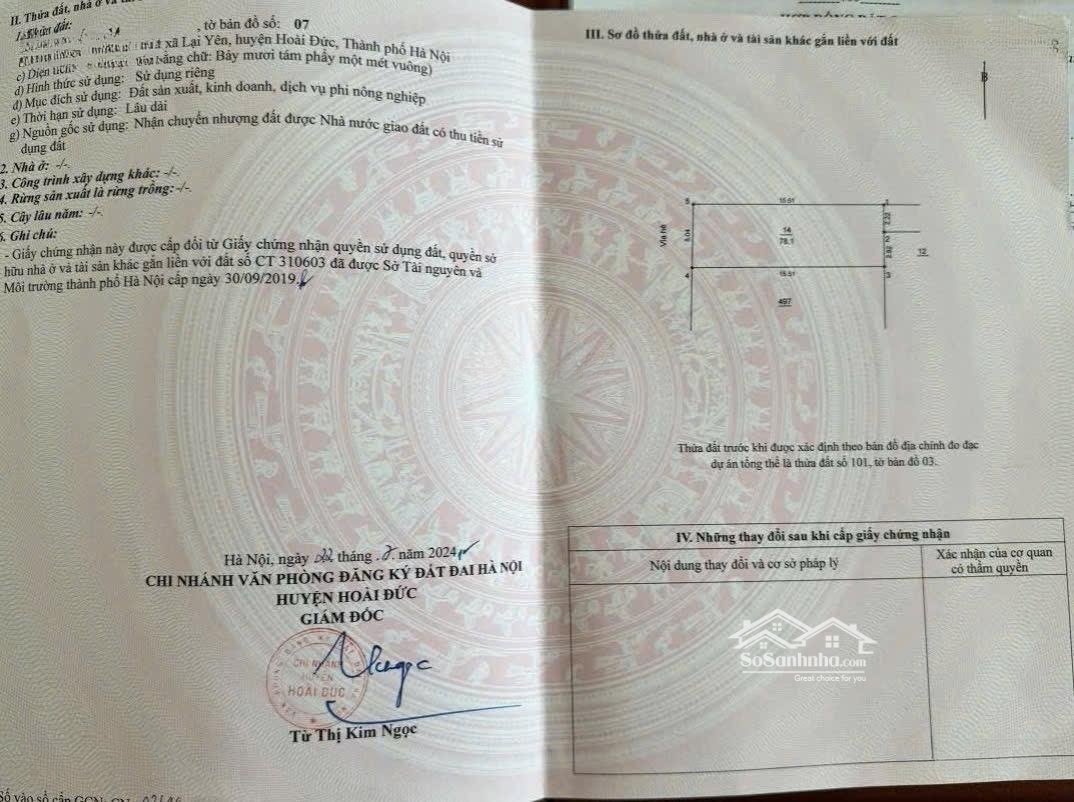 II. Thửa đất, nhà ở và
1. Thửa đất:
, tờ bản đồ số: 07
xã Lại Yên, huyện Hoài Đức, Thành phố Hà Nội
c) Diện bằng chữ: Bảy mươi tám phẩy một mét vuông)
d) Hình thức sử dụng: Sử dụng riêng
đ) Mục đích sử dụng: Đất sản xuất, kinh doanh, dịch vụ phi nông nghiệp
e) Thời hạn sử dụng: Lâu dài
g) Nguồn gốc sử dụng: Nhận chuyển nhượng đất được Nhà nước giao đất có thu tiền sử
dụng đất
2. Nhà ở: -/-.
3. Công trình xây dựng khác: -/-.
4. Rừng sản xuất là rừng trồng: -/-.
5. Cây lâu năm: -/-.
6. Ghi chú:
- Giấy chứng nhận này được cấp đổi từ Giấy chứng nhận quyền sử dụng đất, quyền sở
hữu nhà ở và tài sản khác gắn liền với đất số CT 310603 đã được Sở Tài nguyên và
Môi trường thành phố Hà Nội cấp ngày 30/09/2019.
Hà Nội, ngày 22 tháng năm 2024
CHI NHÁNH VĂN PHÒNG ĐĂNG KÝ ĐẤT ĐAI HÀ NỘI
HUYỆN HOÀI ĐỨC
GIÁM ĐỐC
CHI NHÁNH
HUYỆN
HOÀI ĐỨC
Từ Thị Kim Ngọc
Số vào sổ cấp GCN:
III. Sơ đồ thửa đất, nhà ở và tài sản khác gắn liền với đất
B
5
15.51
1
Vỉa hè
5.04
14
78.1
2.22
2
2.82
12
4
15.51
3
497
Thửa đất trước khi được xác định theo bản đồ địa chính đo đạc
dự án tổng thể là thửa đất số 101, tờ bản đồ 03.
IV. Những thay đổi sau khi cấp giấy chứng nhận
Nội dung thay đổi và cơ sở pháp lý
Xác nhận của cơ quan
có thẩm quyền
SoSanhnha.com
Great choice for you